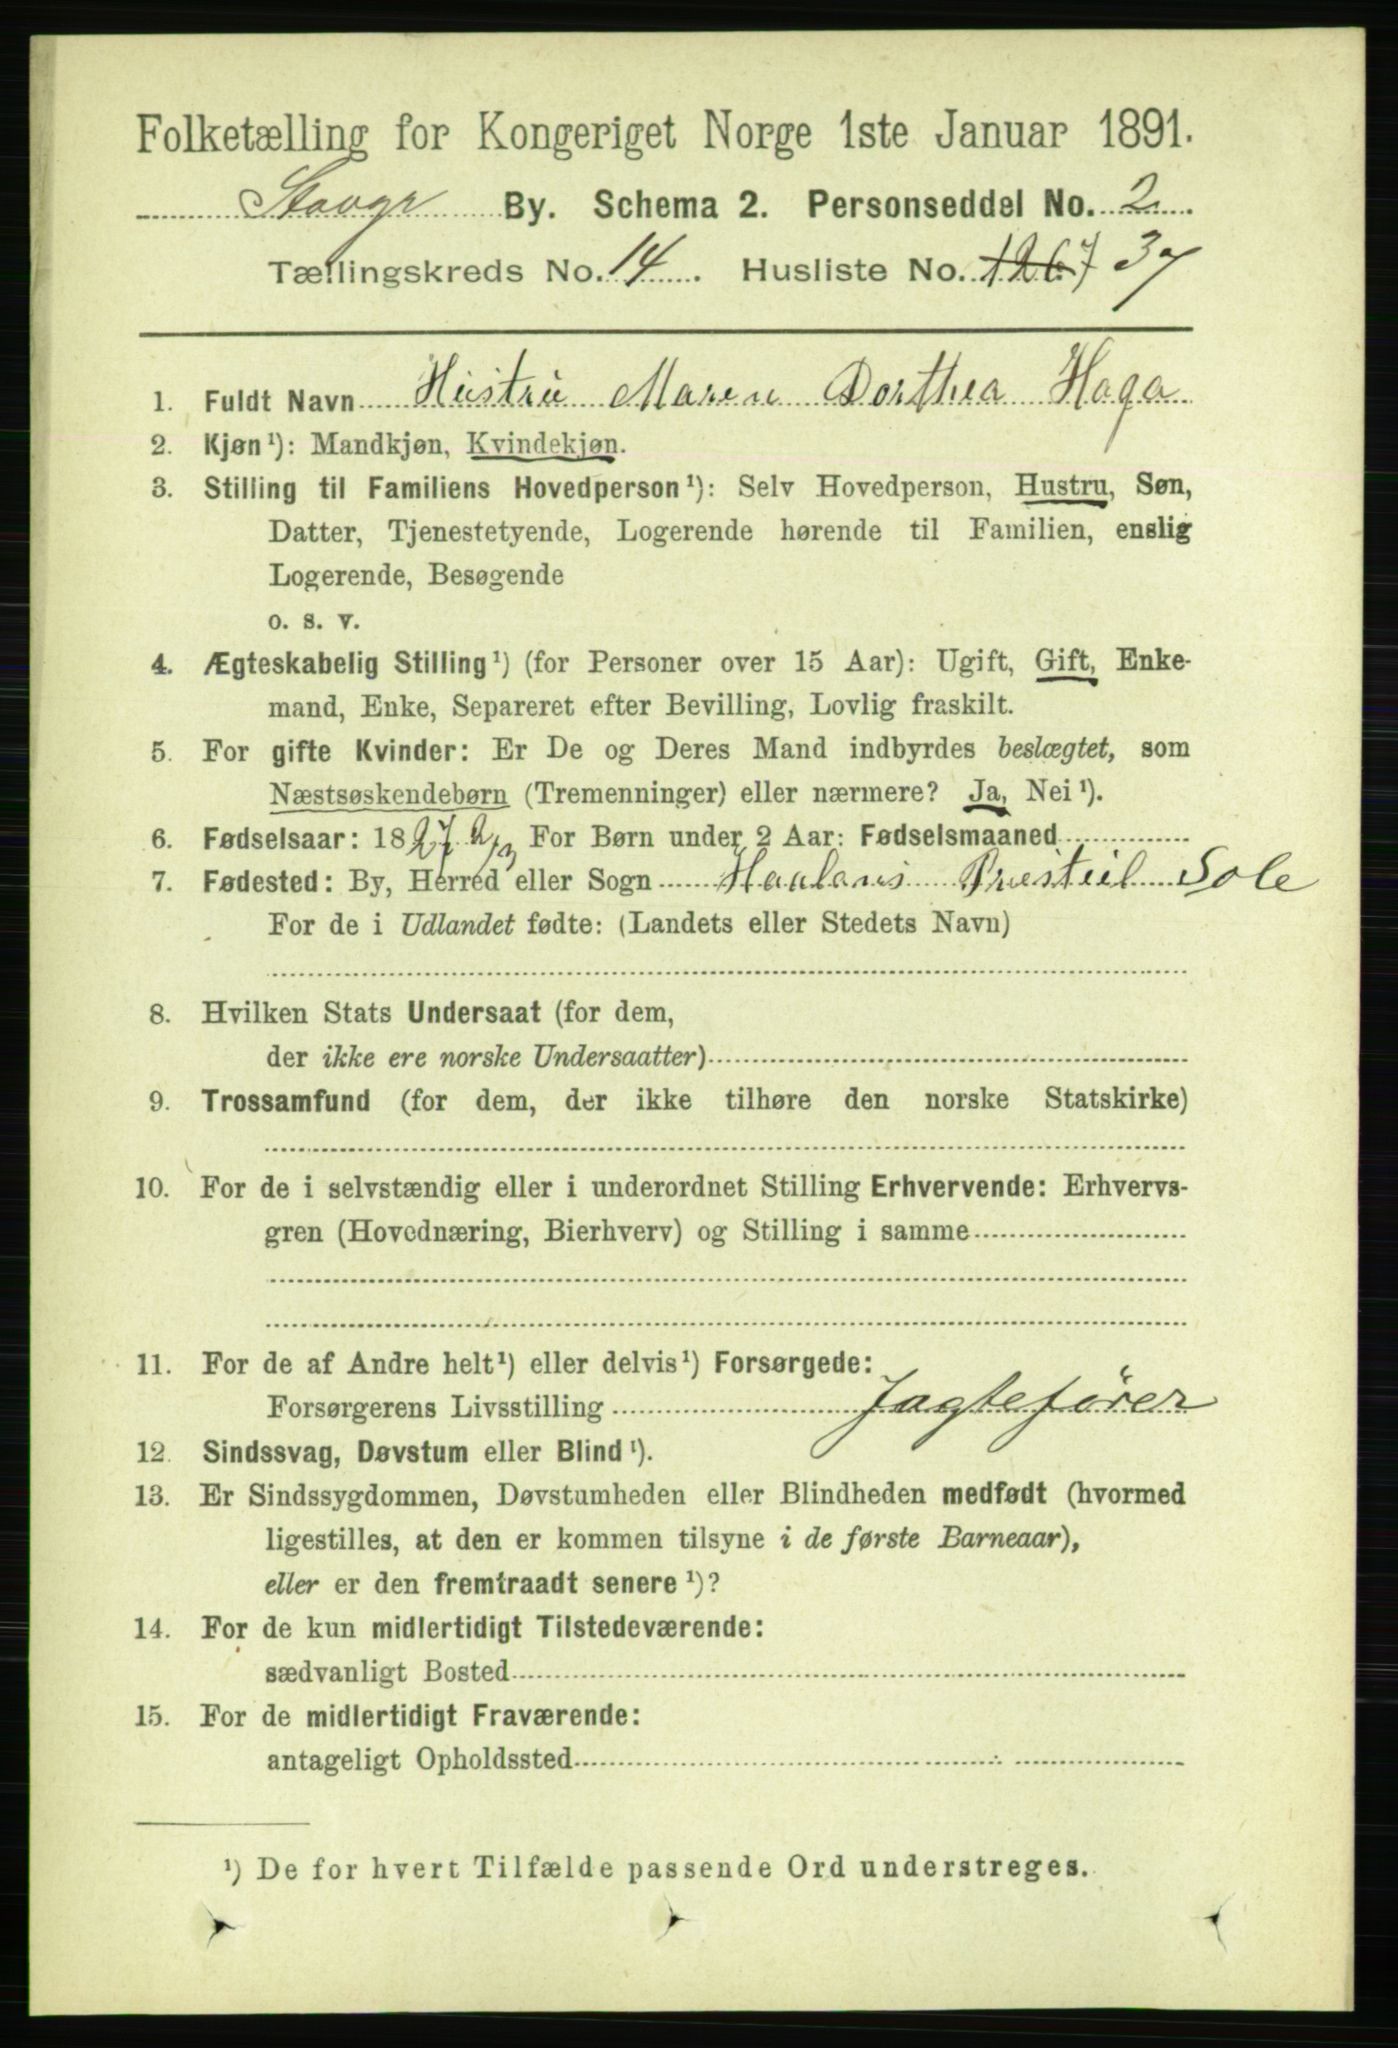 Folketælling for Kongeriget Norge 1ste Januar 1891.
Stavgr By. Schema 2. Personseddel No. 2.
Tællingskreds No. 14. Husliste No. 1267 37
1. Fuldt Navn Hustru Maren Dorthea Haga
2. Kjøn¹): Mandkjøn, Kvindekjøn.
3. Stilling til Familiens Hovedperson¹): Selv Hovedperson, Hustru, Søn,
Datter, Tjenestetyende, Logerende hørende til Familien, enslig
Logerende, Besøgende
o. s. v.
4. Ægteskabelig Stilling¹) (for Personer over 15 Aar): Ugift, Gift, Enke-
mand, Enke, Separeret efter Bevilling, Lovlig fraskilt.
5. For gifte Kvinder: Er De og Deres Mand indbyrdes beslægtet, som
Næstsøskendebørn (Tremenninger) eller nærmere? Ja, Nei¹).
6. Fødselsaar: 1827 2/3 For Børn under 2 Aar: Fødselsmaaned
7. Fødested: By, Herred eller Sogn Haalans Sole
For de i Udlandet fødte: (Landets eller Stedets Navn)
8. Hvilken Stats Undersaat (for dem,
der ikke ere norske Undersaatter)
9. Trossamfund (for dem, der ikke tilhøre den norske Statskirke)
10. For de i selvstændig eller i underordnet Stilling Erhvervende: Erhvervs-
gren (Hovednæring, Bierhverv) og Stilling i samme
11. For de af Andre helt¹) eller delvis¹) Forsørgede:
Forsørgerens Livsstilling Jagtefører
12. Sindssvag, Døvstum eller Blind¹).
13. Er Sindssygdommen, Døvstumheden eller Blindheden medfødt (hvormed
ligestilles, at den er kommen tilsyne i de første Barneaar),
eller er den fremtraadt senere¹)?
14. For de kun midlertidigt Tilstedeværende:
sædvanligt Bosted
15. For de midlertidigt Fraværende:
antageligt Opholdssted
¹) De for hvert Tilfælde passende Ord understreges.